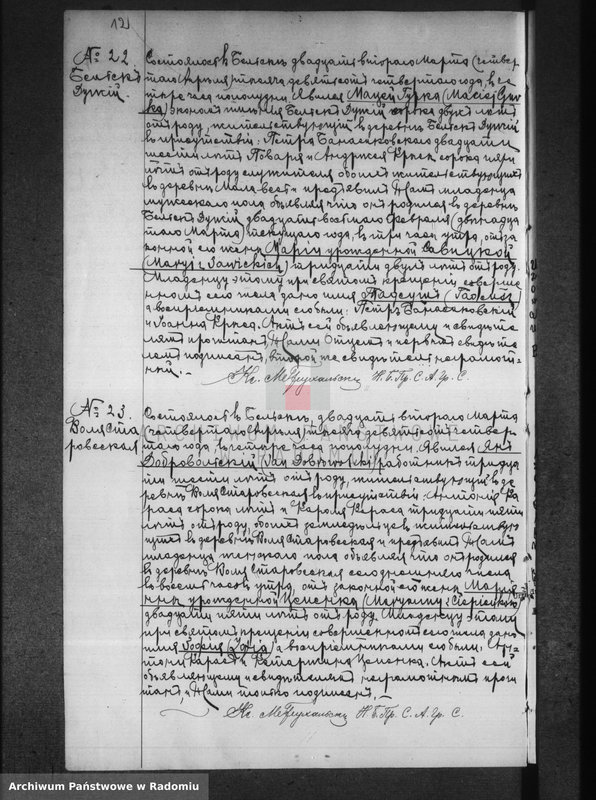 12
№ 22
Бельскъ
Дужій.
Состоялось въ Бельскѣ двадцать второго Марта (четвер-
таго Апрѣля) тысяча девятьсотъ четвертаго года, въ че-
тыре часа пополудни. Явился Мацей Гурка (Maciej Gur-
ka) экономъ имѣнія Бельскъ Дужій сорока двухъ лѣтъ
отъ роду, жительствующій въ деревнѣ Бельскъ Дужій
въ присутствіи: Петра Банасковскаго двадцати
шести лѣтъ Повара и Андржея сорока пяти
лѣтъ отъ роду служителя обоихъ жительствующихъ
въ деревнѣ Мала весь и предъявилъ Намъ младенца
мужескаго пола объявляя что онъ родился въ деревнѣ
Бельскъ Дужій двадцать восьмаго Февраля (двѣнадца-
таго Марта) текущаго года, въ три часа утра, отъ за-
конной его жены Маріи урожденной Савицкой
(Maryi z Sawickich) тридцати двухъ лѣтъ отъ роду.
Младенцу этому при святомъ крещеніи соверше-
нномъ сего числа дано имя Тадеушъ (Tadeusz)
а восприемниками его были: Петръ Банасковскій
и Іоанна. Актъ сей объявляющему и свидѣте-
лямъ прочитанъ, Нами Отцемъ и первымъ свидѣте-
лемъ подписанъ, второй же свидѣтель неграмот-
ный. —
Кс. Н. Б. Пр. С. А. Гр. С.
№ 23.
Воля Ста-
ровсская
Состоялось въ Бельскѣ, двадцать второго Марта
(четвертаго Апрѣля) тысяча девятьсотъ четвер-
таго года, въ четыре часа пополудни. Явился Янъ
Добровольскій (Jan Dobrowolski) работникъ тридца-
ти шести лѣтъ отъ роду, жительствующій въ де-
ревнѣ Воля Старовсская въ присутствіи: Антонія Ка-
раса сорока лѣтъ и Кароля Караса тридцати пяти
лѣтъ отъ роду, обоихъ земледѣльцевъ жительствую-
щихъ въ деревнѣ Воля Старовсская и предъявилъ Намъ
младенца женскаго пола объявляя что онъ родился
въ деревнѣ Воля Старовсская сегодняшняго числа
въ восемь часовъ утра, отъ законной его жены Мария-
нны урожденной Цеменка (Maryanny
двадцати пяти лѣтъ отъ роду. Младенцу этому
при святомъ крещеніи совершенномъ сего числа дано
имя Зофія (Zofia) а восприемниками его были: Ан-
тоній Карасъ и Катаржина Цеменка. Актъ сей
объявляющему и свидѣтелямъ неграмотнымъ прочи-
танъ, и Нами только подписанъ. —
Кс. Н. Б. Пр. С. А. Гр. С.
Archiwum Państwowe w Radomiu